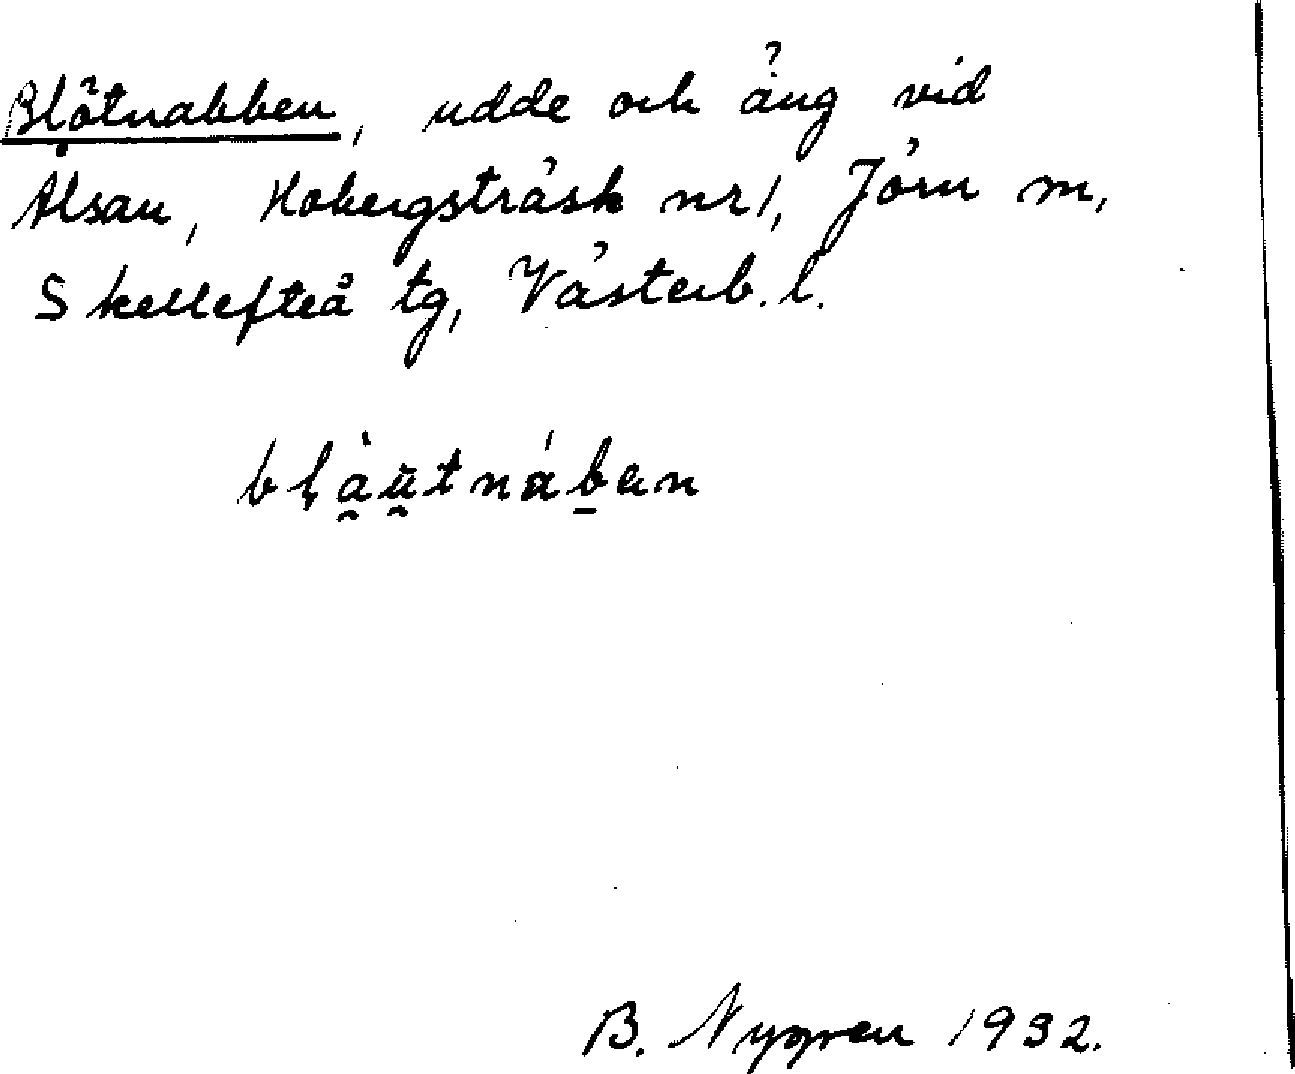 Blötnabben, udde och äng vid
Ålsan, Hobergsträsk nr 1, Jörn m,
Skellefteå tg, Västerb. l.
bḷàu̯tnáb̠en
B. Nygren 1932.